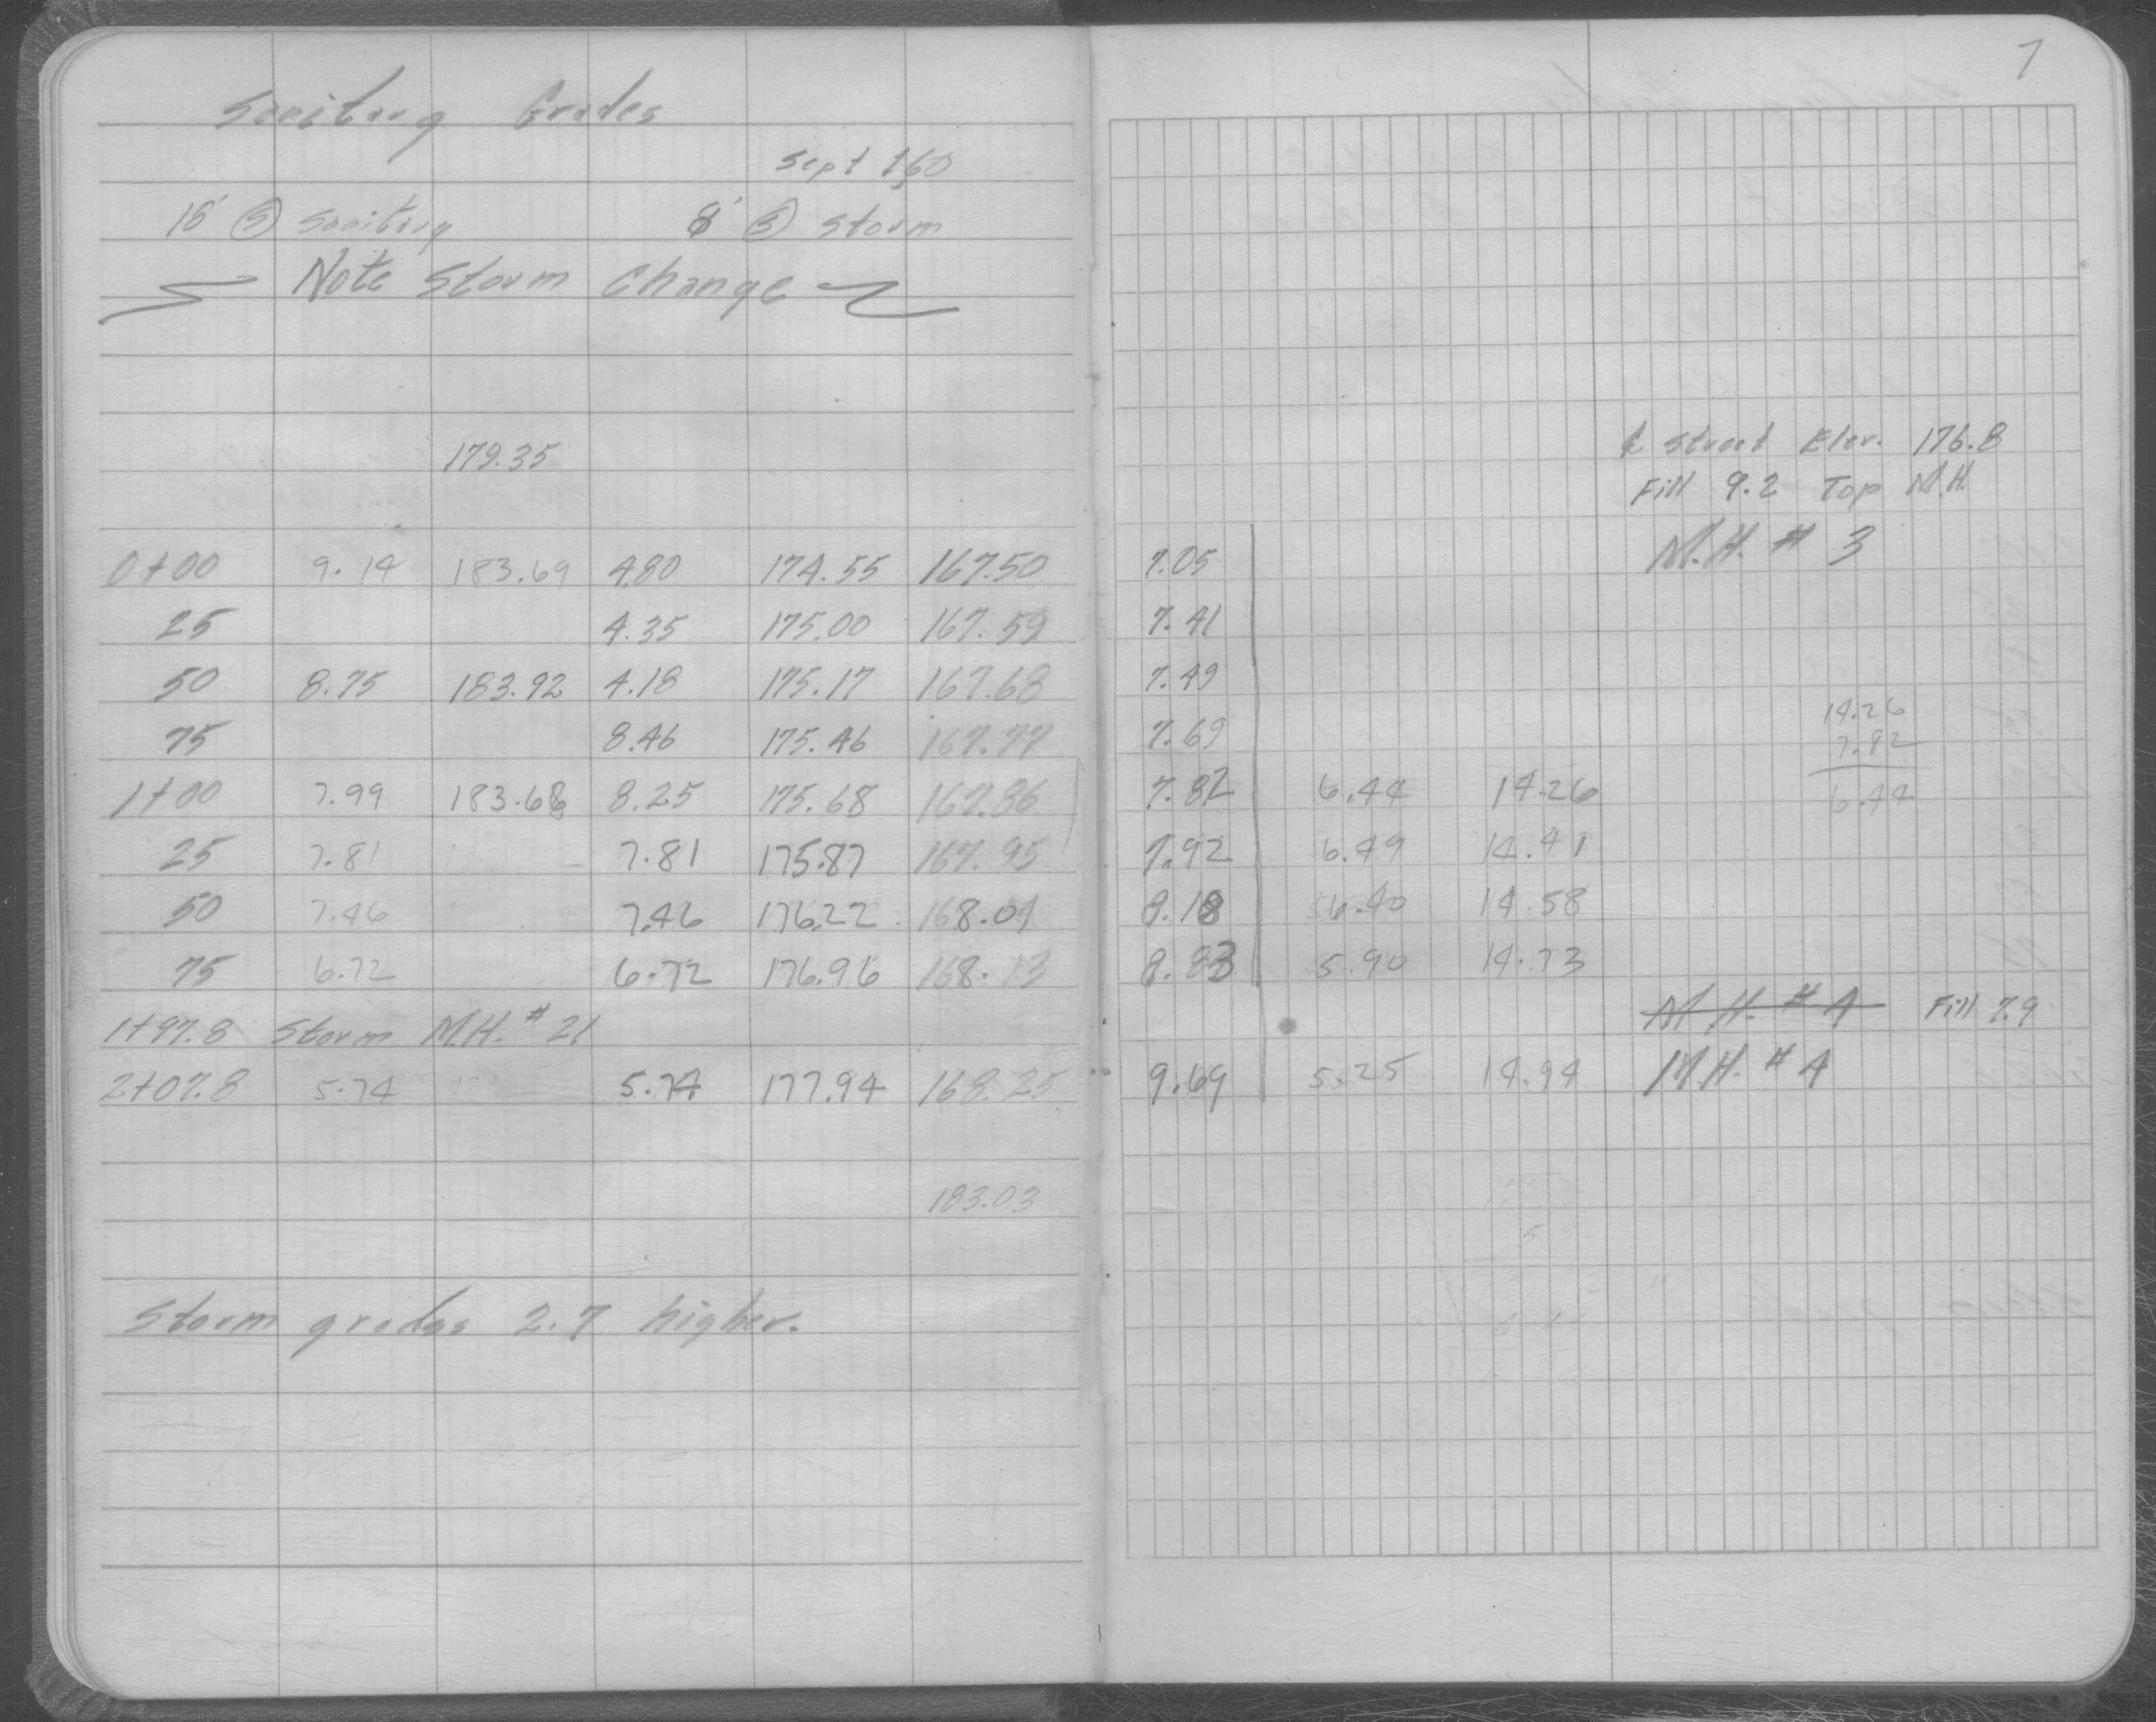 7
Sanitary Grades
Sept 1, 60
15' Ⓢ Sanitary 8' Ⓢ Storm
Note Storm Change
179.35
℄ Street Elev. 176.8
Fill 9.2 Top M.H.
0+00 9.14 183.69 4.80 174.55 167.50 7.05 M.H. # 3
25 4.35 175.00 167.59 7.41
50 8.75 183.92 4.18 175.17 167.68 7.49
14.26
75 8.46 175.46 167.77 7.69 7.82
1+00 7.99 183.68 8.25 175.68 167.86 7.82 6.44 14.26 6.44
25 7.81 7.81 175.87 167.95 7.92 6.49 14.41
50 7.46 7.46 176.22 168.04 8.18 6.40 14.58
75 6.72 6.72 176.96 168.13 8.83 5.90 14.73
1+97.8 Storm M.H. # 21 M.H. # 4 Fill 7.9
2+07.8 5.74 5.74 177.94 168.25 9.69 5.25 14.94 M.H. # 4
183.03
Storm grades 2.7 higher.